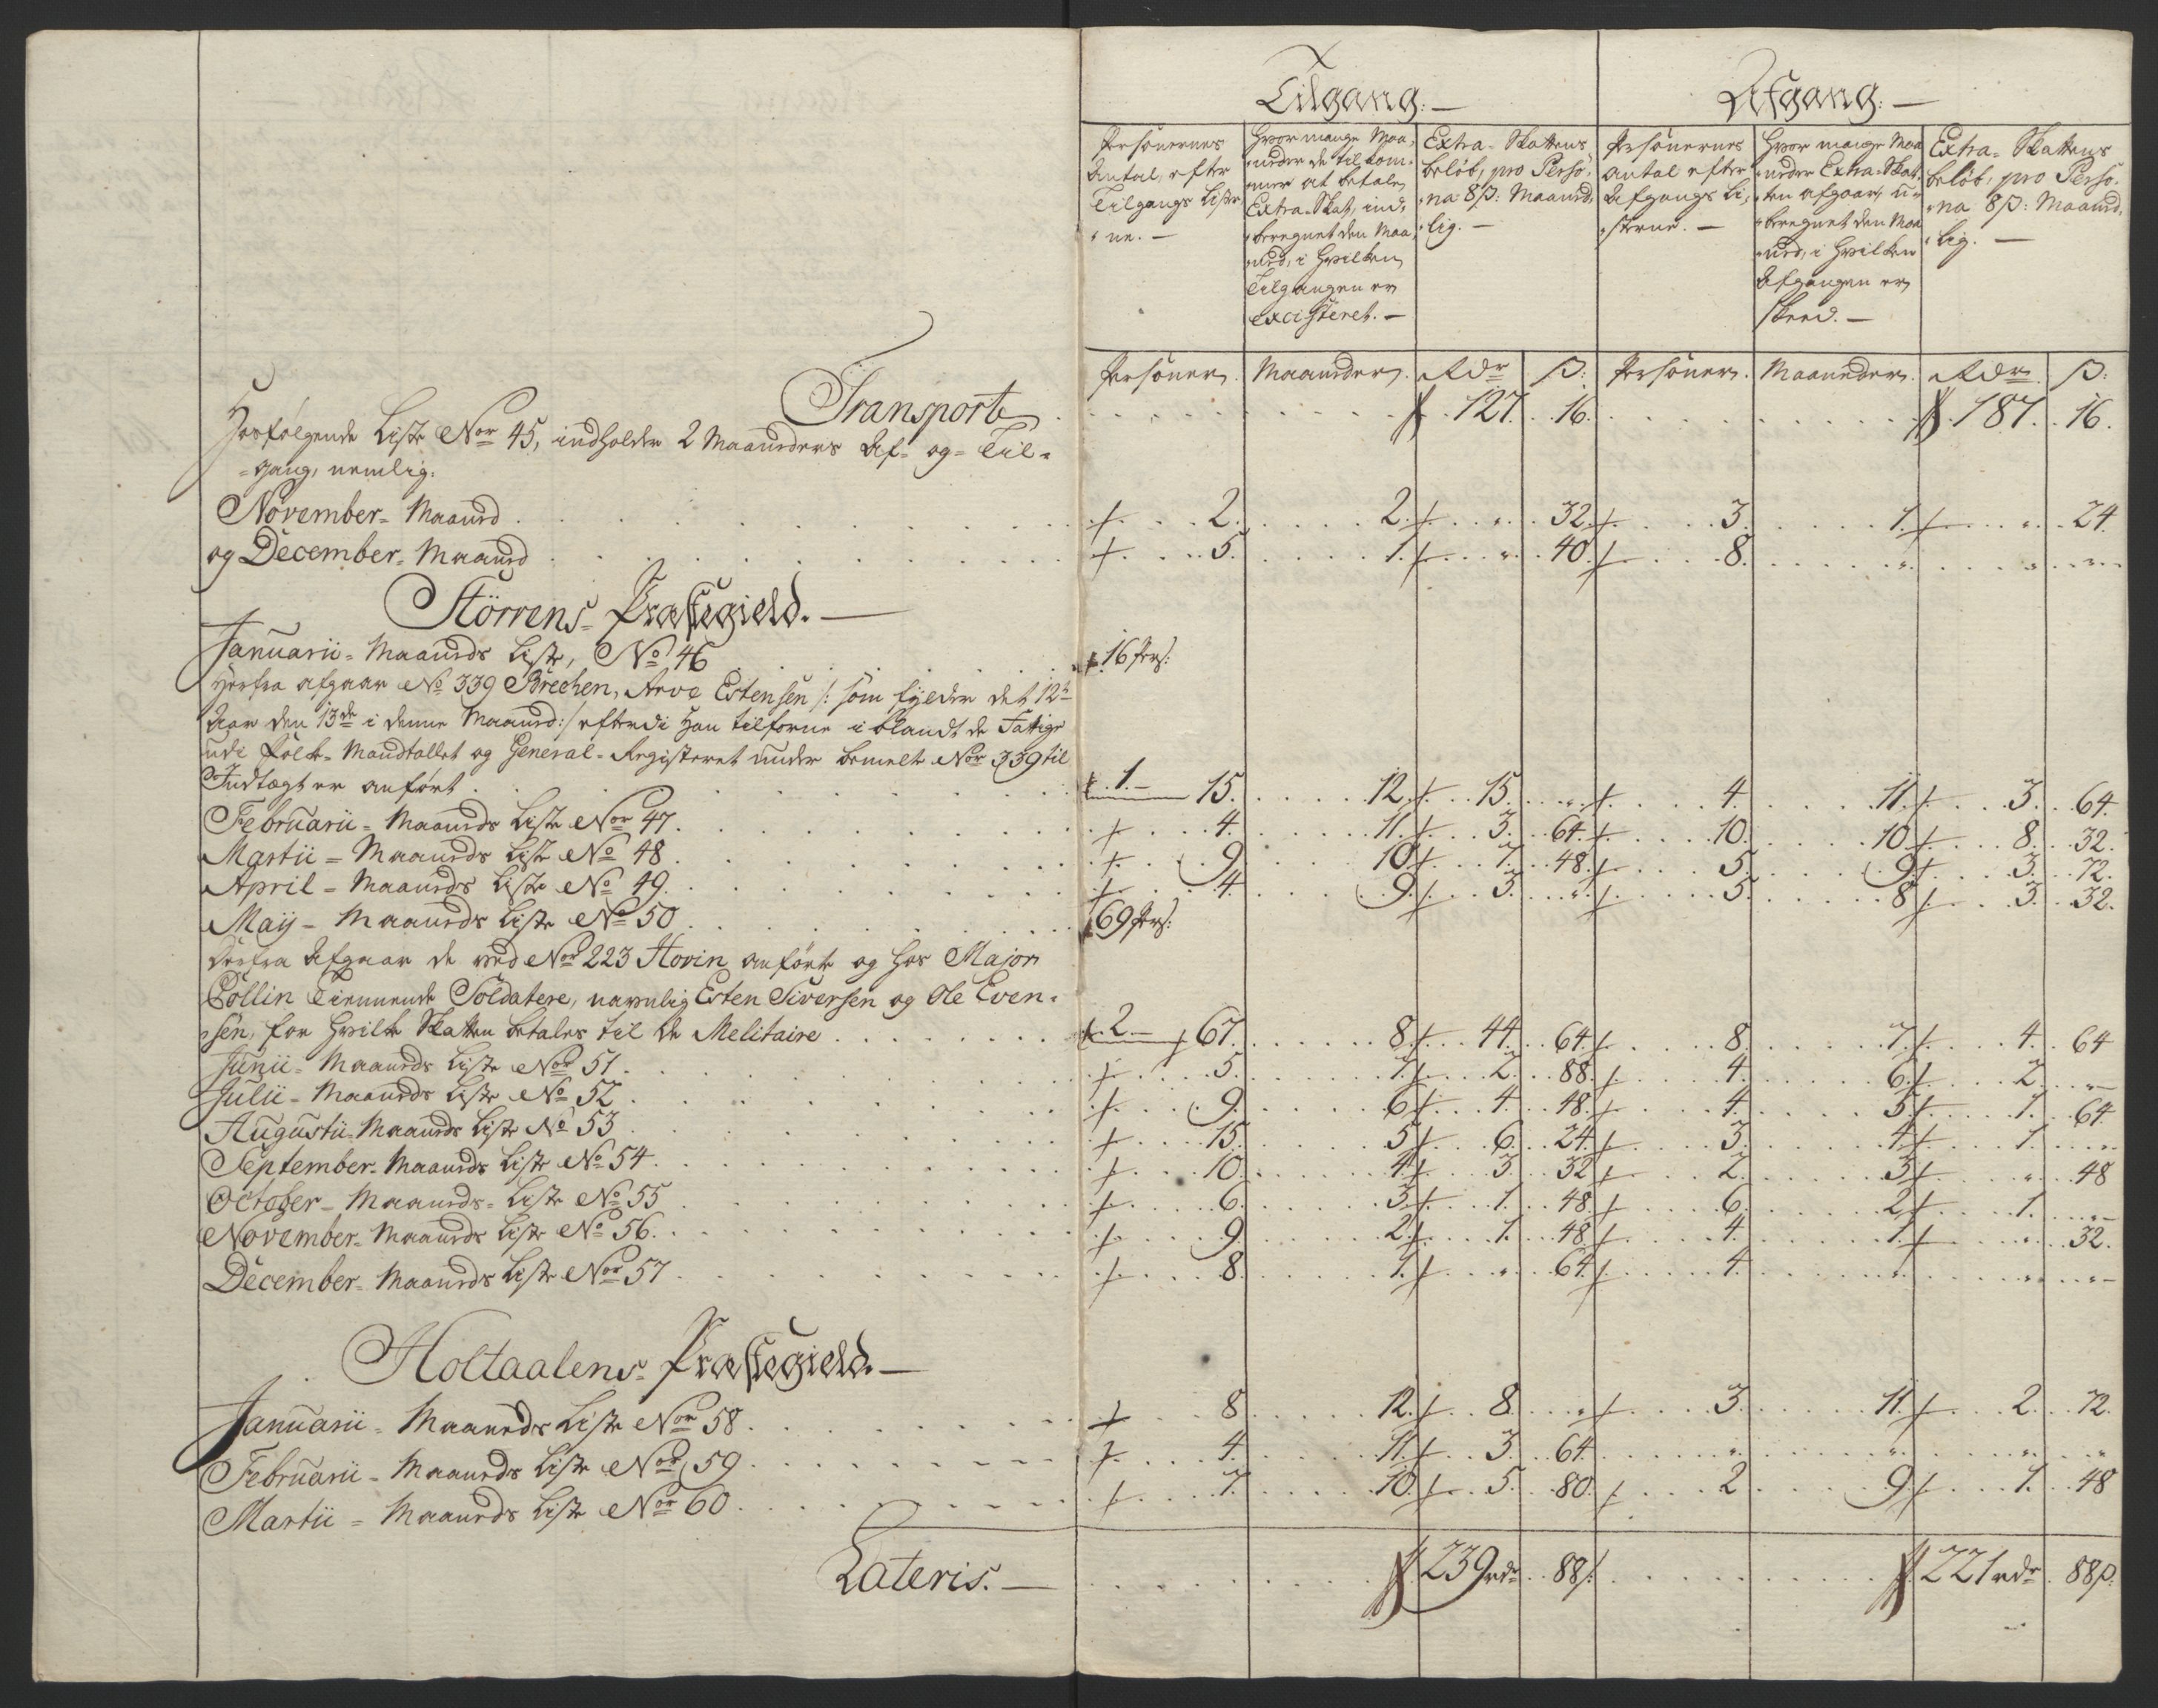 Tilgang. —
Afgang. —
Personernes Antal, efter Tilgangs Lister-ne. —
Hvor mange Maaneder de tilkommer at betale Extra-Skat, indberegnet den Maaned, i hvilken Tilgangen er excisteret. —
Extra-Skattens beløb, pro Persona 8 ß: Maanedlig. —
Personernes antal efter Afgangs Listerne. —
Hvor mange Maaneder Extra-Skatten afgaar, uberegnet den Maaned, i hvilken Afgangen er skeed. —
Extra-Skattens beløb, pro Persona 8 ß: Maanedlig. —
Personer. Maaneder. Rdr ß: Personer. Maaneder. Rdr ß:
Transport . . . 127. 16. . . . 187. 16.
Hosfølgende Liste Nor 45, indholder 2 Maaneders Af- og Til-
-gang, nemlig:
November- Maaned . . . 2. 2. " 32. 3. 1. " 24.
og December- Maaned . . . 5. 1. " 40. 8. " " "
Störrens- Præstegield. —
Januarii- Maaneds Liste, No 46 . . . 16 Pers:
Herfra afgaar No 339 Brechen, Arve Estensen /: som fylder det 12te
Aar den 13de i denne Maaned :/ efterdi han tilforne iblandt de Fattige
udi Folke-Mandtallet og General-Registeret under bemelte Nor 339 til
Indtægt er anført . . . 1. — 15. 12. 15. " 4. 11. 3. 64.
Februarii- Maaneds Liste Nor 47. 4. 11. 3. 64. 10. 10. 8. 32.
Martii- Maaneds Liste No 48. 9. 10. 7. 48. 5. 9. 3. 72.
April- Maaneds Liste No 49. 4. 9. 3. " 5. 8. 3. 32.
Maij- Maaneds Liste No 50. 69 Pers:
Derfra Afgaar de ved Nor 223 Hovin anførte og hos Major
Collin Tienende Soldatere, navnlig Esten Siversen og Ole Even-
-sen, for hvilke Skatten betales til de Melitaire . . . 2. — 67. 8. 44. 64. 8. 7. 4. 64
Junii- Maaneds Liste Nor 51. 5. 7. 2. 88. 4. 6. 2. "
Julii- Maaneds Liste No 52. 9. 6. 4. 48. 4. 5. 1. 64.
Augustii- Maaneds Liste No 53. 15. 5. 6. 24. 3. 4. 1. "
September- Maaneds Liste No 54. 10. 4. 3. 32 2. 3. " 48
October- Maaneds- Liste No 55. 6. 3. 1. 48. 6. 2. 1. "
November- Maaneds Liste No 56. 9. 2. 1. 48. 4. 1. " 32.
December- Maaneds Liste Nor 57. 8. 1. " 64. 4. " " "
Holtaalens- Præstegield. —
Januarii- Maaneds Liste Nor 58. 8 12. 8. " 3. 11. 2. 72.
Februarii- Maaneds Liste Nor 59. 4. 11. 3. 64. " " " "
Martii- Maaneds Liste Nor 60. 7. 10. 5. 80. 2 9. 1. 48
Lateris. — 239 rdr 88 ß. 221 rdr 88 ß.